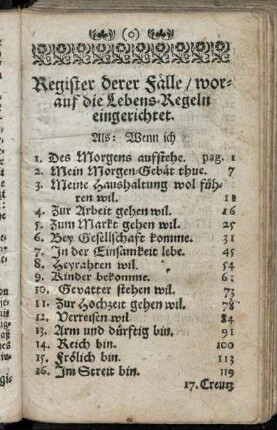 (o)
Register derer Fälle/ wor-
auf die Lebens-Regeln
eingerichtet.
Als: Wenn ich
1. Des Morgens aufstehe. pag. 1
2. Mein Morgen-Gebät thue. 7
3. Meine Haushaltung wol füh-
ren wil. 12
4. Zur Arbeit gehen wil. 16
5. Zum Markt gehen wil. 25
6. Bey Gesellschaft komme. 31
7. In der Einsamkeit lebe. 45
8. Heyrahten wil. 54
9. Kinder bekomme.
10. Gevatter stehen wil. 73
11. Zur Hochzeit gehen wil. 78
12. Verreisen wil. 84
13. Arm und dürftig bin. 91
14. Reich bin. 100
15. Frölich bin. 113
16. Im Streit bin. 119
17. Creutz